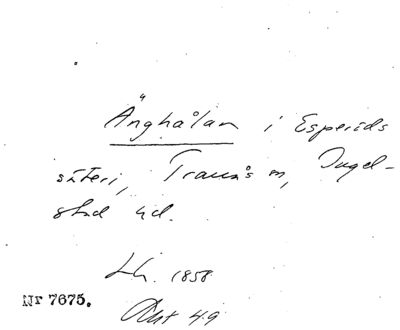 Änghålan i Esperöds
säteri, Tranås sn, Ingel-
stad hd.
Lk. 1858
Nr 7675.
Akt 49